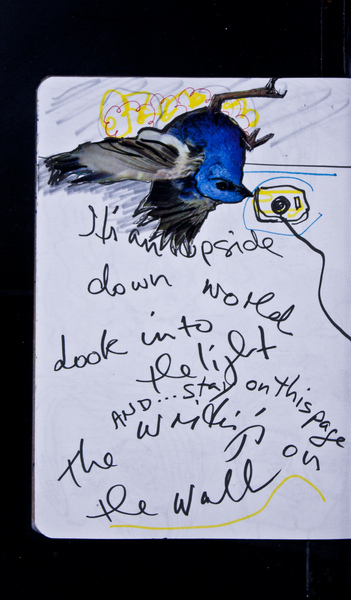 It's an upside
down world
Look into
the light
AND... stay on this page
the writing's on
the wall